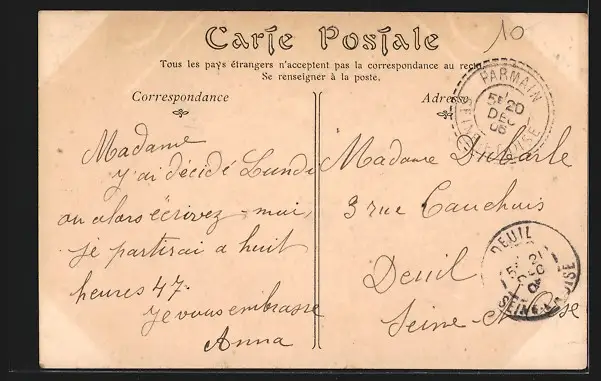 10
Carte Postale
Tous les pays étrangers n'acceptent pas la correspondance au recto
Se renseigner à la poste.
Correspondance
Adresse
PARMAIN
5E 20
DEC
06
SEINE-ET-OISE
Madame
j'ai décidé Lundi
ou alors écrivez-moi,
je partirai a huit
heures 47.
Je vous embrasse
Anna
Madame Dubarle
3 rue Cauchois
Deuil
Seine-et-Oise
DEUIL
5E 21
DEC
SEINE-ET-OISE